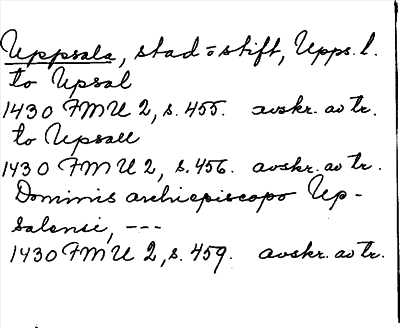 Uppsala, stad o stift, Upps. l.
to Upsal
1430 FMU 2, s. 455. avskr. av tr.
to Upsall
1430 FMU 2, s. 456. avskr. av tr.
Dominis archiepiscopo Up-
salensi, ---
1430 FMU 2, s. 459. avskr. av tr.